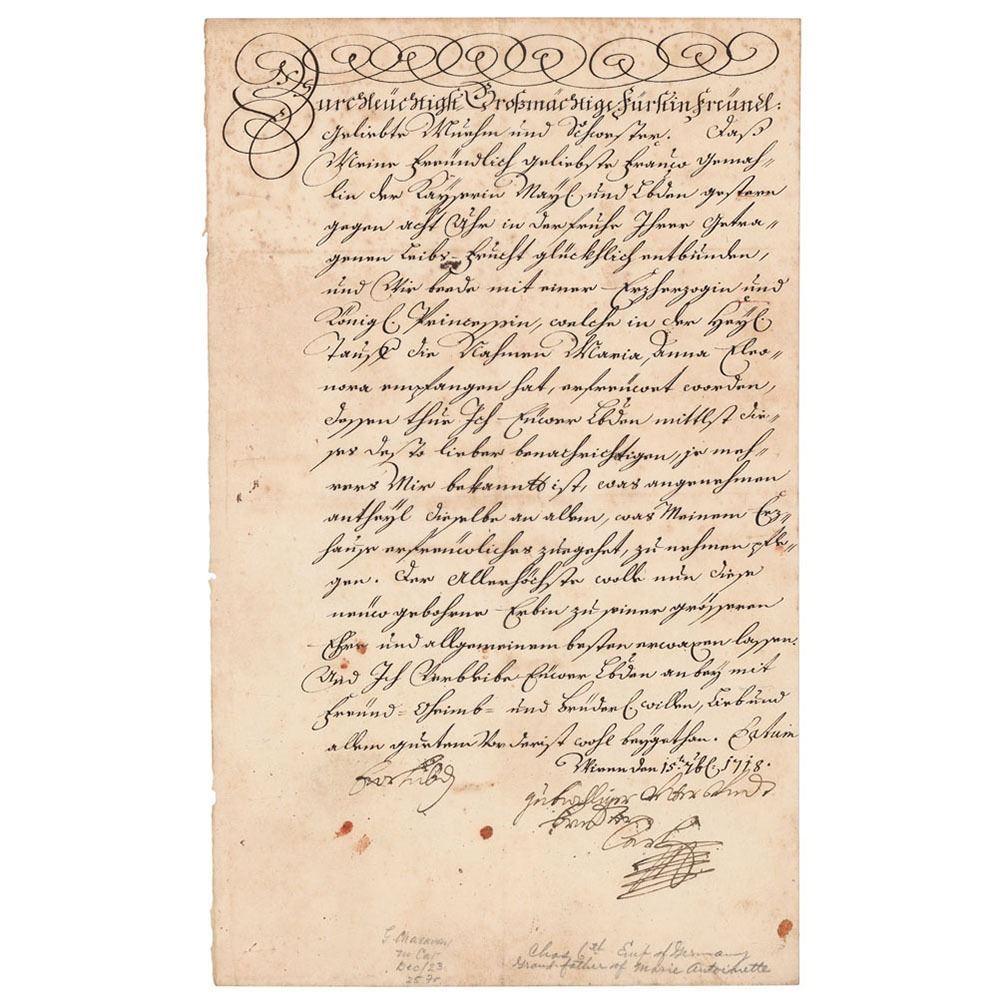 Durchleüchtigste Großmächtige Fürstin Freündl:
Geliebte Muehm und Schwester. Daß
Meine Freündlich geliebste Frauw Gemah„
lin der Kayserin May: und Lbden gestern
gegen acht Uhr in der frühe Ihrer Getra„
genen Leibs-Frucht glücklich entbunden,
und Wir beede mit einer Erzherzogin und
Königl: Princessin, welche in der Heyl:
Tauff die Nahmen Maria Anna Eleo„
nora empfangen hat, erfreüwet worden,
dessen thue Ich Eüwer Lbden mittlst die„
ses desto lieber benachrichtigen, je meh„
rers Mir bekannt ist, was angenehmen
antheyl dieselbe an allem, was Meinem Erz„
hause erfreüwliches zugehet, zu nehmen pfle„
gen. Der Allerhöchste wolle nun diese
neüw gebohrne Erbin zu seiner grösseren
Ehre und allgemeinem besten erwaxen lassen.
Und Ich Verbleibe Eüwer Lbden anbey mit
Freünd- Oheimb- und Brüderl: willen, Lieb und
allem guetem Vorderist wohl beygethan. Datum
Wienn den 15t. 7bl: 1718.
Eur Libd
gutwilliger Vetter undt
Bruder
Carl
Chas 6th Emp of Germany
Grand-father of Marie Antoinette
Dec/23